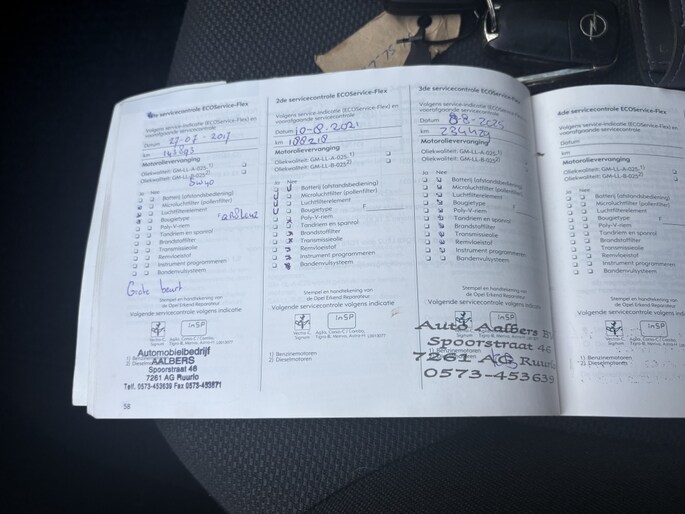 servicecontrole ECOService-Flex
Volgens service-indicatie (ECOService-Flex) en
voorafgaande servicecontrole
Datum 27-07-2017
km
Motorolievervanging
Oliekwaliteit: GM-LL-A-025 1)
Oliekwaliteit: GM-LL-B-025 2)
5W40
Ja Nee
Batterij (afstandsbediening)
Microluchtfilter (pollenfilter)
Luchtfilterelement
Bougietype
Poly-V-riem
Tandriem en spanrol
Brandstoffilter
Transmissieolie
Remvloeistof
Instrument programmeren
Bandenvulsysteem
Grote beurt
Stempel en handtekening van
de Opel Erkend Reparateur
Volgende servicecontrole volgens indicatie
InSP
Vectra-C, Signum
1) Benzinemotoren
2) Dieselmotoren
Automobielbedrijf
AALBERS
Spoorstraat 46
7261 AG Ruurlo
Telf. 0573-453639 Fax 0573-453871
56
2de servicecontrole ECOService-Flex
Volgens service-indicatie (ECOService-Flex) en
voorafgaande servicecontrole
Datum 10-8-2021
km 188218
Motorolievervanging
Oliekwaliteit: GM-LL-A-025 1)
Oliekwaliteit: GM-LL-B-025 2)
Ja Nee
Batterij (afstandsbediening)
Microluchtfilter (pollenfilter)
Luchtfilterelement
Bougietype F
Poly-V-riem
Tandriem en spanrol
Brandstoffilter
Transmissieolie
Remvloeistof
Instrument programmeren
Bandenvulsysteem
Stempel en handtekening van
de Opel Erkend Reparateur
Volgende servicecontrole volgens indicatie
InSP
Vectra-C, Signum
1) Benzinemotoren
2) Dieselmotoren
3de servicecontrole ECOService-Flex
Volgens service-indicatie (ECOService-Flex) en
voorafgaande servicecontrole
Datum
km 234429
Motorolievervanging
Oliekwaliteit: GM-LL-A-025 1)
Oliekwaliteit: GM-LL-B-025 2)
Ja Nee
Batterij (afstandsbediening)
Microluchtfilter (pollenfilter)
Luchtfilterelement
Bougietype F
Poly-V-riem
Tandriem en spanrol
Brandstoffilter
Transmissieolie
Remvloeistof
Instrument programmeren
Bandenvulsysteem
Stempel en handtekening van
de Opel Erkend Reparateur
Volgende servicecontrole volgens indicatie
InSP
Auto Aalbers BV
Spoorstraat 46
7261 AG Ruurlo
0573-453639
1) Benzinemotoren
2) Dieselmotoren
4de servicecontrole ECOService-Flex
Volgens service-indicatie (ECOService-Flex) en
voorafgaande servicecontrole
Datum
km
Motorolievervanging
Oliekwaliteit: GM-LL-A-025 1)
Oliekwaliteit: GM-LL-B-025 2)
Ja Nee
Batterij (afstandsbediening)
Microluchtfilter (pollenfilter)
Luchtfilterelement
Bougietype
Poly-V-riem
Tandriem en spanrol
Brandstoffilter
Transmissieolie
Remvloeistof
Instrument programmeren
Bandenvulsysteem
Stempel en handtekening van
de Opel Erkend Reparateur
Volgende servicecontrole volgens indicatie
InSP
1) Benzinemotoren
2) Dieselmotoren